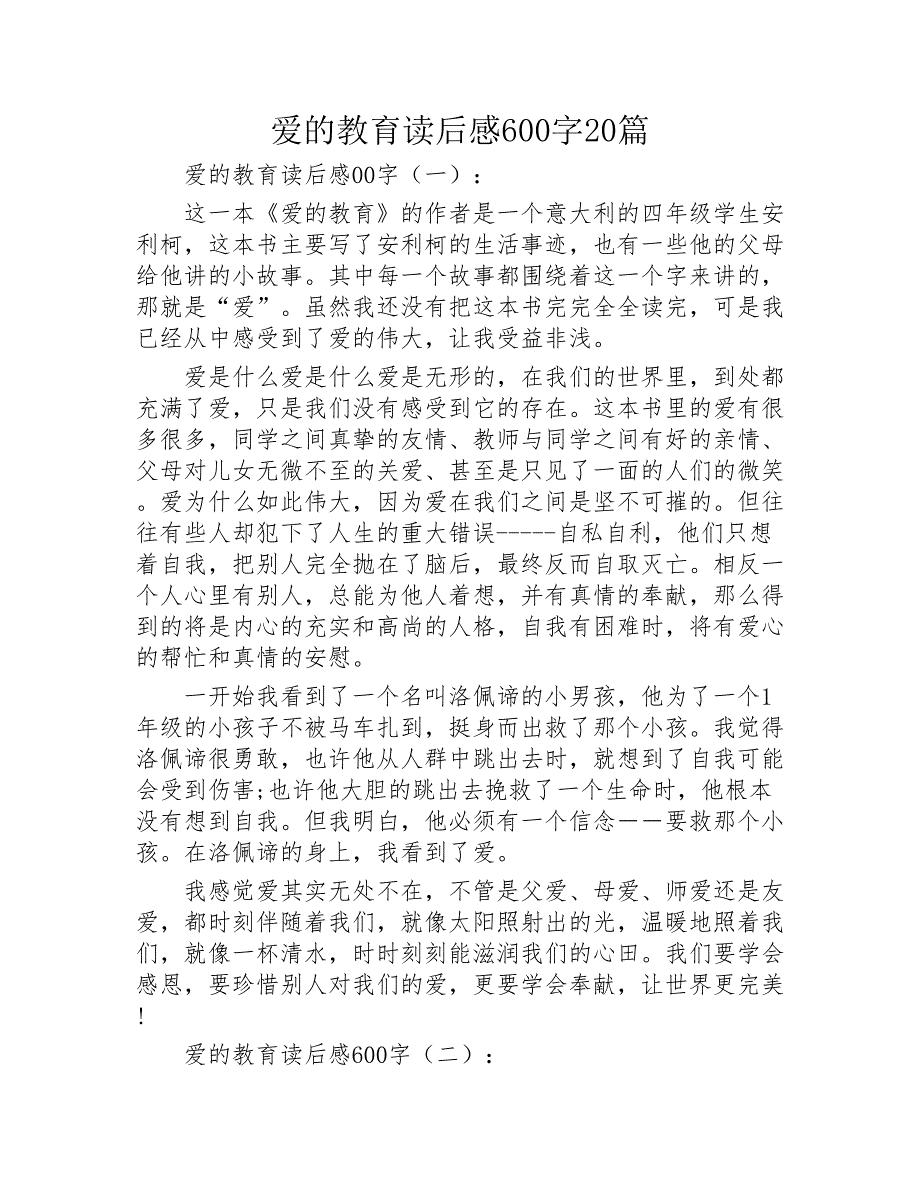 爱的教育读后感600字20篇
爱的教育读后感00字（一）：
这一本《爱的教育》的作者是一个意大利的四年级学生安
利柯，这本书主要写了安利柯的生活事迹，也有一些他的父母
给他讲的小故事。其中每一个故事都围绕着这一个字来讲的，
那就是“爱”。虽然我还没有把这本书完完全全读完，可是我
已经从中感受到了爱的伟大，让我受益非浅。
爱是什么爱是什么爱是无形的，在我们的世界里，到处都
充满了爱，只是我们没有感受到它的存在。这本书里的爱有很
多很多，同学之间真挚的友情、教师与同学之间有好的亲情、
父母对儿女无微不至的关爱、甚至是只见了一面的人们的微笑
。爱为什么如此伟大，因为爱在我们之间是坚不可摧的。但往
往有些人却犯下了人生的重大错误-----自私自利，他们只想
着自我，把别人完全抛在了脑后，最终反而自取灭亡。相反一
个人心里有别人，总能为他人着想，并有真情的奉献，那么得
到的将是内心的充实和高尚的人格，自我有困难时，将有爱心
的帮忙和真情的安慰。
一开始我看到了一个名叫洛佩谛的小男孩，他为了一个1
年级的小孩子不被马车扎到，挺身而出救了那个小孩。我觉得
洛佩谛很勇敢，也许他从人群中跳出去时，就想到了自我可能
会受到伤害;也许他大胆的跳出去挽救了一个生命时，他根本
没有想到自我。但我明白，他必须有一个信念－－要救那个小
孩。在洛佩谛的身上，我看到了爱。
我感觉爱其实无处不在，不管是父爱、母爱、师爱还是友
爱，都时刻伴随着我们，就像太阳照射出的光，温暖地照着我
们，就像一杯清水，时时刻刻能滋润我们的心田。我们要学会
感恩，要珍惜别人对我们的爱，更要学会奉献，让世界更完美
!
爱的教育读后感600字（二）：